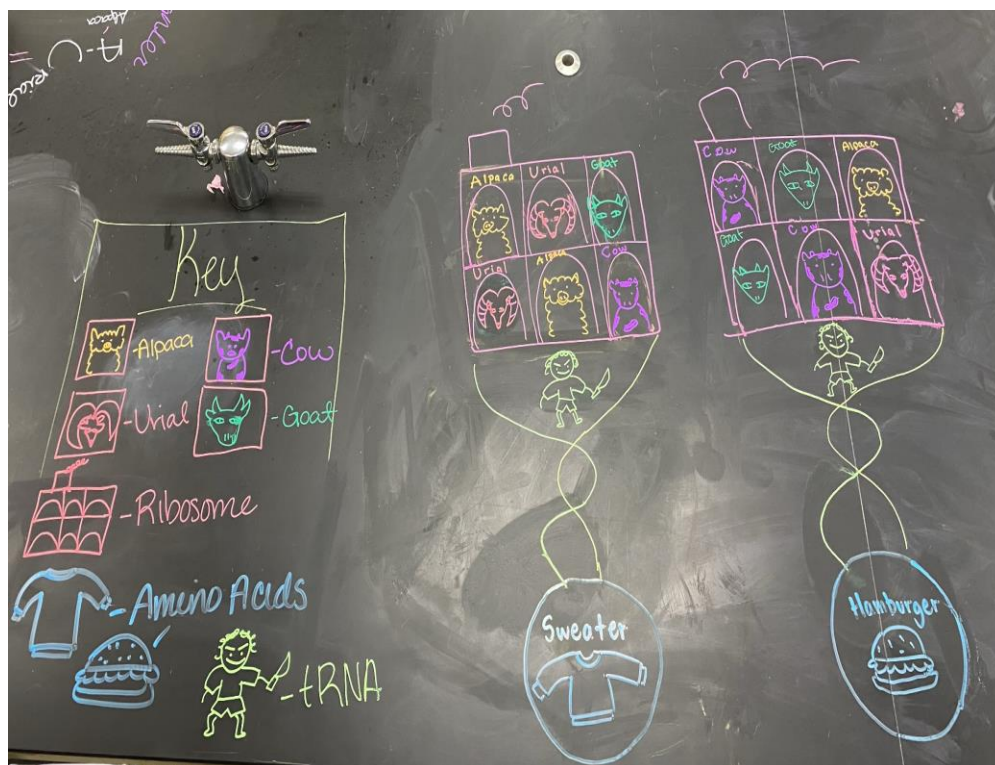 Alpaca
A-U
Key
-Alpaca
-Cow
-Urial
-Goat
-Ribosome
-Amino Acids
-tRNA
Alpaca Urial Goat
Urial Alpaca Cow
Sweater
Cow Goat Alpaca
Goat Cow Urial
Hamburger